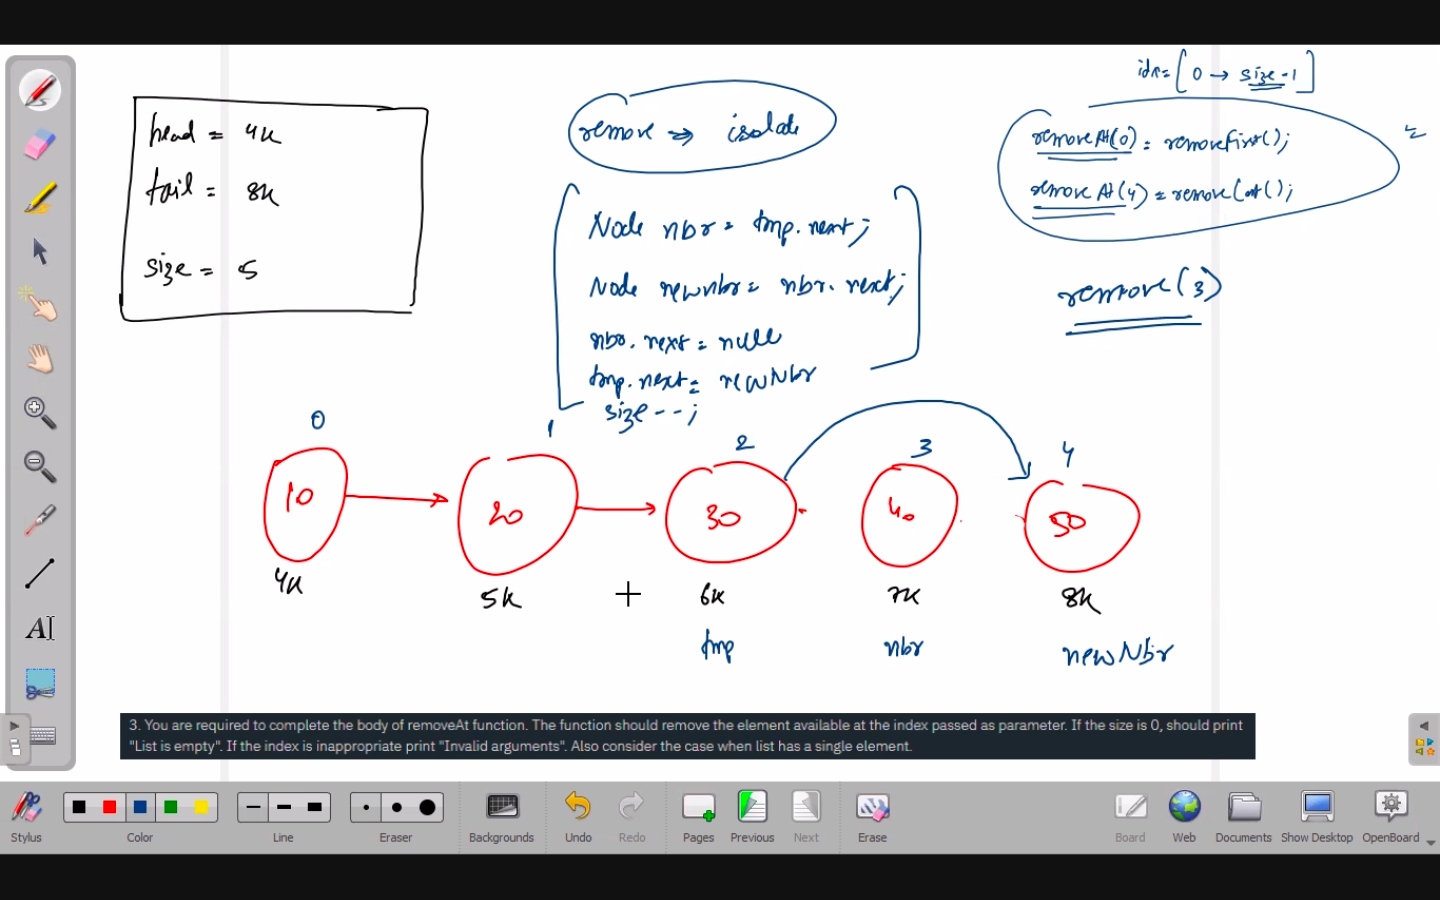 idx = [ 0 → size-1 ]
head = 4K
tail = 8K
size = 5
remove ⇒ isolate
removeAt(0) = removeFirst();
removeAt(4) = removeLast();
remove(3)
Node nbr = tmp.next;
Node newnbr = nbr.next;
nbr.next = null
tmp.next = newNbr
size--;
0 1 2 3 4
10 20 30 40 50
4K 5K 6K 7K 8K
tmp nbr newNbr
3. You are required to complete the body of removeAt function. The function should remove the element available at the index passed as parameter. If the size is 0, should print
"List is empty". If the index is inappropriate print "Invalid arguments". Also consider the case when list has a single element.
Stylus Color Line Eraser Backgrounds Undo Redo Pages Previous Next Erase Board Web Documents Show Desktop OpenBoard